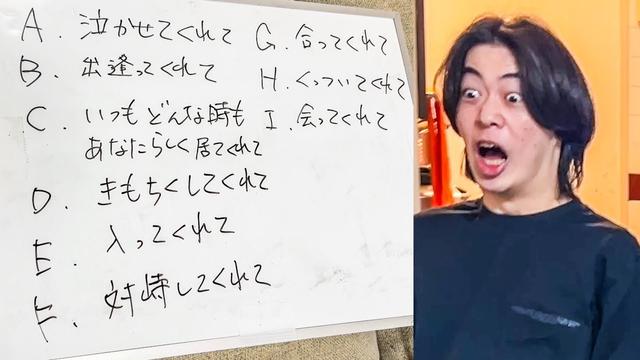 A. 泣かせてくれて
B. 出逢ってくれて
C. いつもどんな時も
あなたらしく居てくれて
D. きもちくしてくれて
E. 入ってくれて
F. 対峙してくれて
G. 合ってくれて
H. くっついてくれて
I. 会ってくれて